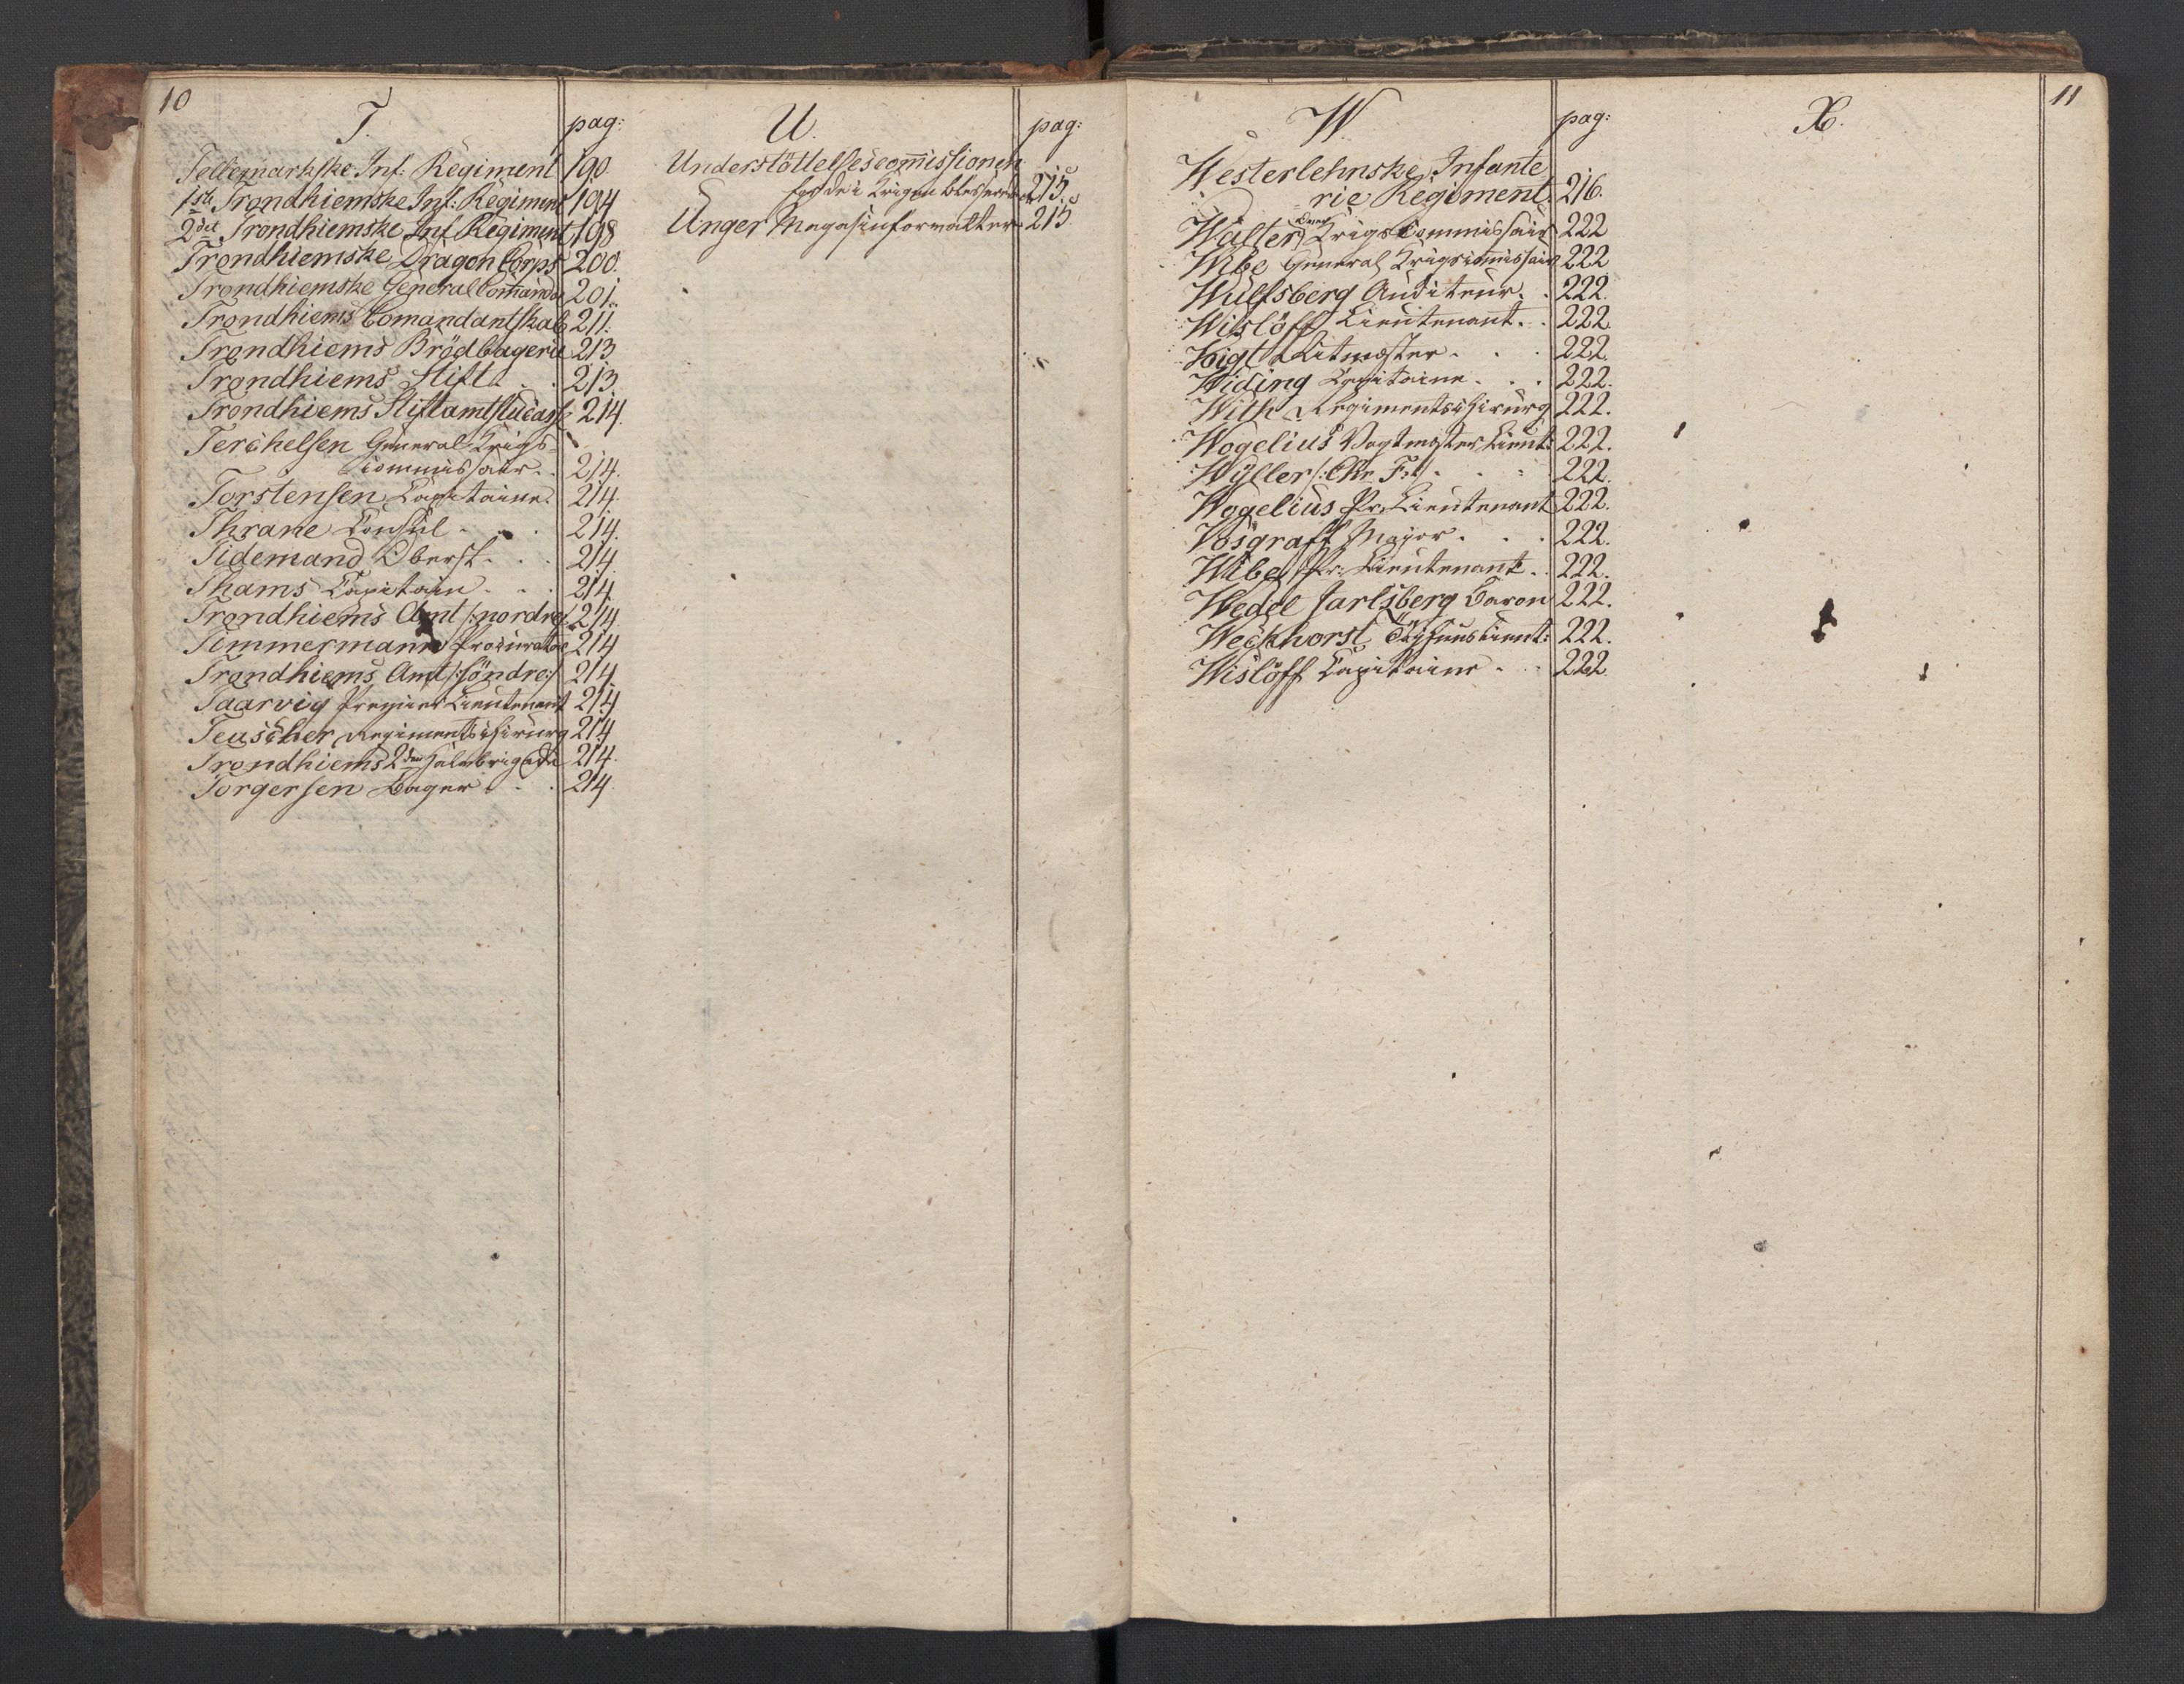 10
T.
pag:
Tellemarkske Inf: Regiment 190.
1ste Trondhiemske Inf: Regiment 194
2det Trondhiemske Inf. Regiment 198
Trondhiemske Dragon Corps 200.
Trondhiemske General Comando 201.
Trondhiems Comandantskab 211.
Trondhiems Brödbageri 213.
Trondhiems Stift 213.
Trondhiems Stiftamtstue 214.
Terchelsen General-Krigs-
commissair. 214.
Torstensen Capitaine. 214.
Thrane Consul 214.
Tidemand Oberst. 214.
Thams Capitain 214.
Trondhiems Amt /:nordre:/ 214.
Timmermann Procurator 214
Trondhiems Amt /:söndre:/ 214.
Taarvig Premier Lieutenant 214
Teuscher Regimentschirurg 214
Trondhiems 2den Halvbrigade 214.
Torgersen Bager 214
U.
pag:
Understöttelsescommissionen
for de i Krigen blesserede 215.
Unger Magasinforvalter 215
W.
pag:
Westerlehnske Infante
rie Regiment. 216.
Walter Krigscommissair 222
Wibe General Krigscommissair 222
Wulfsberg Auditeur. 222.
Wislöff Lieutenant. 222.
Voigt Ritmester. 222.
Widing Capitaine. 222.
With Regimentschirurg 222.
Wogelius Vagtmester Lieut: 222.
Wyller /:Chr. F:/ 222.
Wogelius Pr. Lieutenant 222.
Vosgraff Mayor. 222.
Wibe Pr: Lieutenant. 222.
Wedel Jarlsberg Baron 222.
Weckhorst Töyhuuslieut: 222.
Wislöff Capitaine. 222.
X.
11